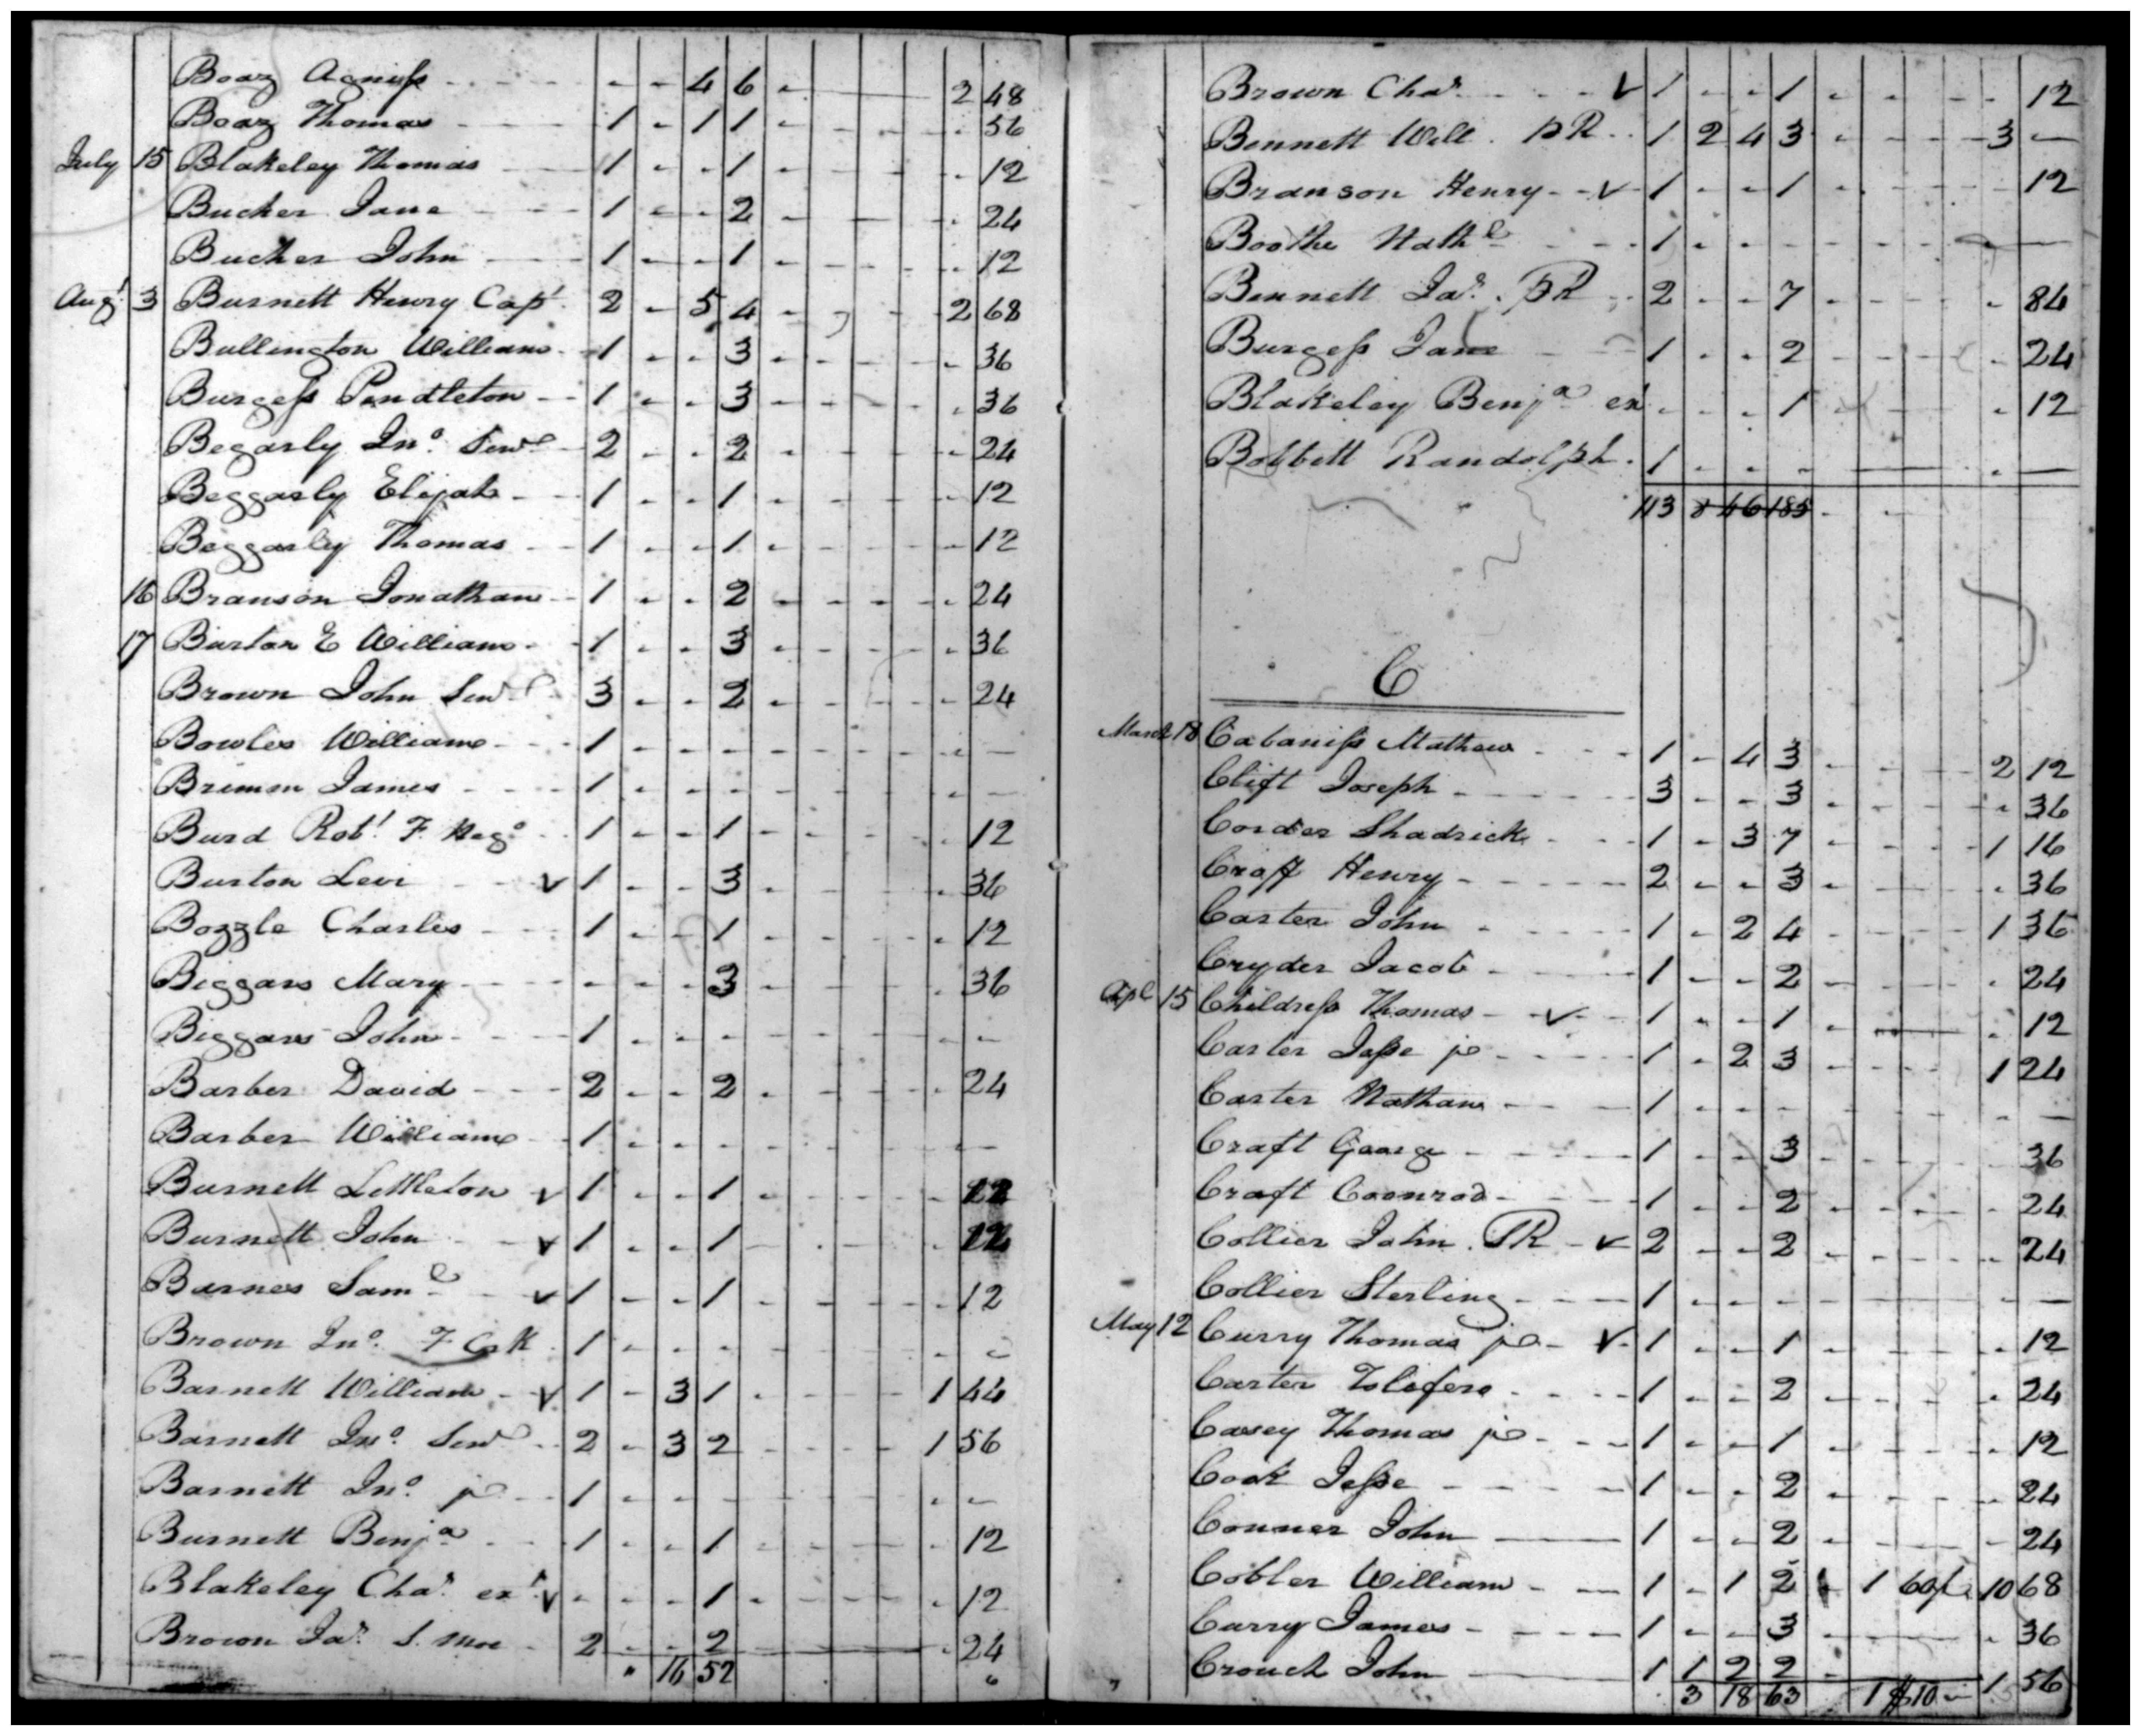 Boaz Agniss - - 4 6 - 2 48
Boaz Thomas 1 - 1 1 - - - - 56
July 15 Blakeley Thomas 1 - - 1 - - - - 12
Bucker Jane 1 - - 2 - - - - 24
Bucker John 1 - - 1 - - - - 12
Augt 3 Burnett Henry Capt 2 - 5 4 - - - 2 68
Bullington William 1 - - 3 - - - - 36
Burgess Pendleton 1 - - 3 - - - - 36
Begarly Jno. Senr 2 - - 2 - - - - 24
Beggarly Elijah 1 - - 1 - - - - 12
Beggarley Thomas 1 - - 1 - - - - 12
16 Branson Jonathan 1 - - 2 - - - - 24
17 Barton E William 1 - - 3 - - - - 36
Brown John Senr 3 - - 2 - - - - 24
Bowles William 1 - - - - - - - -
Brimm James 1 - - - - - - - -
Burd Robt F. Nego 1 - - 1 - - - - 12
Burton Levi v 1 - - 3 - - - - 36
Bozzle Charles 1 - - 1 - - - - 12
Biggars Mary - - - 3 - - - - 36
Biggars John 1 - - - - - - - -
Barber David 2 - - 2 - - - - 24
Barber William 1 - - - - - - - -
Burnett Littleton v 1 - - 1 - - - - 12
Burnett John v 1 - - 1 - - - - 12
Barnes Saml v 1 - - 1 - - - - 12
Brown Jno. F Cr K 1 - - - - - - - -
Barnett William v 1 - 3 1 - - - 1 44
Barnett Jno. Senr 2 - 3 2 - - - 1 56
Barnett Jno. jr 1 - - - - - - - -
Burnett Benja 1 - - 1 - - - - 12
Blakeley Chas. ext v - - - 1 - - - - 12
Brown Jas. S. Moe 2 - - 2 - 24
" 16 52
Brown Chas. v 1 - - 1 - - - - 12
Bennett Will. PR 1 2 4 3 - - - 3 -
Branson Henry v 1 - - 1 - - - - 12
Boothe Nathl 1 - - - - - - - -
Bennett Jas. PR 2 - - 7 - - - - 84
Burgess Jane 1 - - 2 - - - - 24
Blakeley Benja ex - - - 1 - - - - 12
Bobbett Randolph 1 - - - - - -
113 8 46 185 - -
C
March 18 Cabaniss Mathew 1 - 4 3 - - - 2 12
Clift Joseph 3 - - 3 - - - - 36
Corder Shadrick 1 - 3 7 - - - 1 16
Craft Henry 2 - - 3 - - - - 36
Carter John 1 - 2 4 - - - 1 36
Cryder Jacob 1 - - 2 - - - - 24
Apl 15 Childress Thomas v 1 - - 1 - - - - 12
Carter Jesse jr 1 - 2 3 - - - 1 24
Carter Nathan 1 - - - - - - - -
Craft George 1 - - 3 - - - 36
Craft Coonrod 1 - - 2 - - - - 24
Collier John. PR v 2 - - 2 - - - - 24
Collier Sterling 1 - - - - - - - -
May 12 Curry Thomas jr v 1 - - 1 - - - - 12
Carter 1 - - 2 - - - - 24
Casey Thomas jr 1 - - 1 - - - - 12
Cook Jesse 1 - - 2 - - - - 24
Conner John 1 - - 2 - - - - 24
Cobler William 1 - 1 2 1 10 68
Curry James 1 - - 3 - - - - 36
Crouch John 1 1 2 2 - 1 56
3 18 63 1 $10